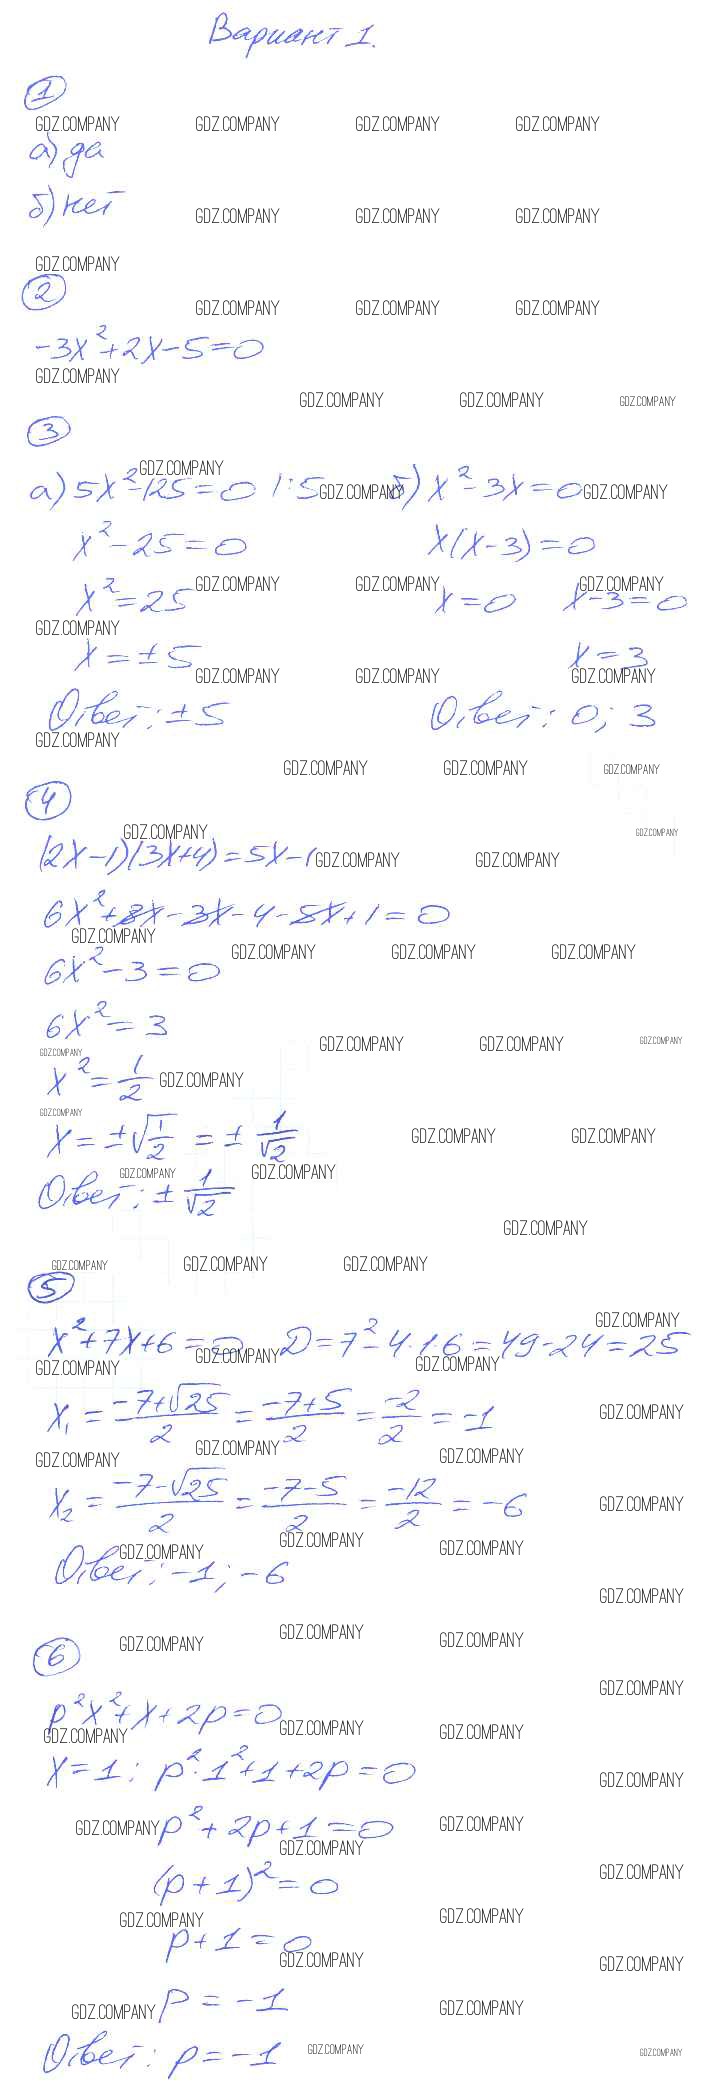 Вариант 1.
1
GDZ.COMPANY GDZ.COMPANY GDZ.COMPANY GDZ.COMPANY
а) да
б) нет
GDZ.COMPANY GDZ.COMPANY GDZ.COMPANY
GDZ.COMPANY
2
GDZ.COMPANY GDZ.COMPANY GDZ.COMPANY
-3x²+2x-5=0
GDZ.COMPANY
GDZ.COMPANY GDZ.COMPANY GDZ.COMPANY
3
GDZ.COMPANY
а) 5x²-125=0 |:5 GDZ.COMPANY б) x²-3x=0 GDZ.COMPANY
x²-25=0 x(x-3)=0
GDZ.COMPANY GDZ.COMPANY GDZ.COMPANY
x²=25 x=0 x-3=0
GDZ.COMPANY
x=±5 x=3
GDZ.COMPANY GDZ.COMPANY GDZ.COMPANY
Ответ: ±5 Ответ: 0; 3
GDZ.COMPANY
GDZ.COMPANY GDZ.COMPANY GDZ.COMPANY
4
GDZ.COMPANY GDZ.COMPANY
(2x-1)(3x+4)=5x-1 GDZ.COMPANY GDZ.COMPANY
6x²+8x-3x-4-5x+1=0
GDZ.COMPANY GDZ.COMPANY GDZ.COMPANY GDZ.COMPANY
6x²-3=0
6x²=3
GDZ.COMPANY GDZ.COMPANY GDZ.COMPANY GDZ.COMPANY
x²=1/2 GDZ.COMPANY
GDZ.COMPANY
x=±√(1/2) = ±1/√2 GDZ.COMPANY GDZ.COMPANY
GDZ.COMPANY GDZ.COMPANY
Ответ: ±1/√2
GDZ.COMPANY
GDZ.COMPANY GDZ.COMPANY GDZ.COMPANY
5
GDZ.COMPANY
x²+7x+6=0 D=7²-4·1·6=49-24=25
GDZ.COMPANY GDZ.COMPANY GDZ.COMPANY
x₁=(-7+√25)/2=(-7+5)/2=-2/2=-1 GDZ.COMPANY
GDZ.COMPANY GDZ.COMPANY GDZ.COMPANY
x₂=(-7-√25)/2=(-7-5)/2=-12/2=-6 GDZ.COMPANY
GDZ.COMPANY GDZ.COMPANY GDZ.COMPANY
Ответ: -1; -6
GDZ.COMPANY
GDZ.COMPANY GDZ.COMPANY GDZ.COMPANY
6
GDZ.COMPANY
p²x²+x+2p=0
GDZ.COMPANY GDZ.COMPANY GDZ.COMPANY
x=1: p²·1²+1+2p=0 GDZ.COMPANY
GDZ.COMPANY p²+2p+1=0 GDZ.COMPANY
GDZ.COMPANY GDZ.COMPANY
(p+1)²=0
GDZ.COMPANY GDZ.COMPANY
p+1=0
GDZ.COMPANY GDZ.COMPANY
GDZ.COMPANY p=-1 GDZ.COMPANY
Ответ: p=-1 GDZ.COMPANY GDZ.COMPANY